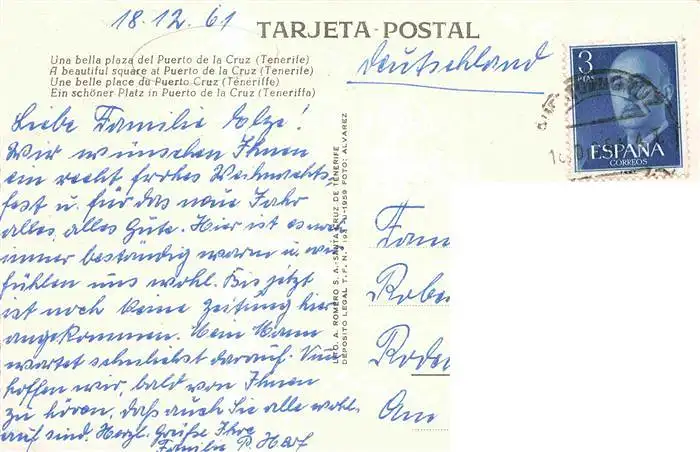 18.12.61
TARJETA POSTAL
Una bella plaza del Puerto de la Cruz (Tenerife)
A beautiful square at Puerto de la Cruz (Tenerife)
Une belle place du Puerto Cruz (Ténériffe)
Ein schöner Platz in Puerto de la Cruz (Teneriffa)
Deutschland
3
PTS
ESPAÑA
CORREOS
Liebe Familie
Wir wünschen Ihnen
ein recht frohes Weihnachts
fest u. für das neue Jahr
alles, alles Gute. Hier ist es
immer beständig warm u. wir
fühlen uns wohl. Bis jetzt
ist noch keine Zeitung hier
angekommen. Mein Mann
wartet sehnlichst darauf. Nun
hoffen wir, bald von Ihnen
zu hören, daß auch Sie alle wohl
auf sind. Herzl. Grüße Ihre
Familie P. Harf
LFO. A. ROMERO S. A.-SANTA CRUZ DE TENERIFE
DEPOSITO LEGAL T.F. N.° 193 -1959 FOTO: ALVAREZ
Fam
Robe
Rode
Am